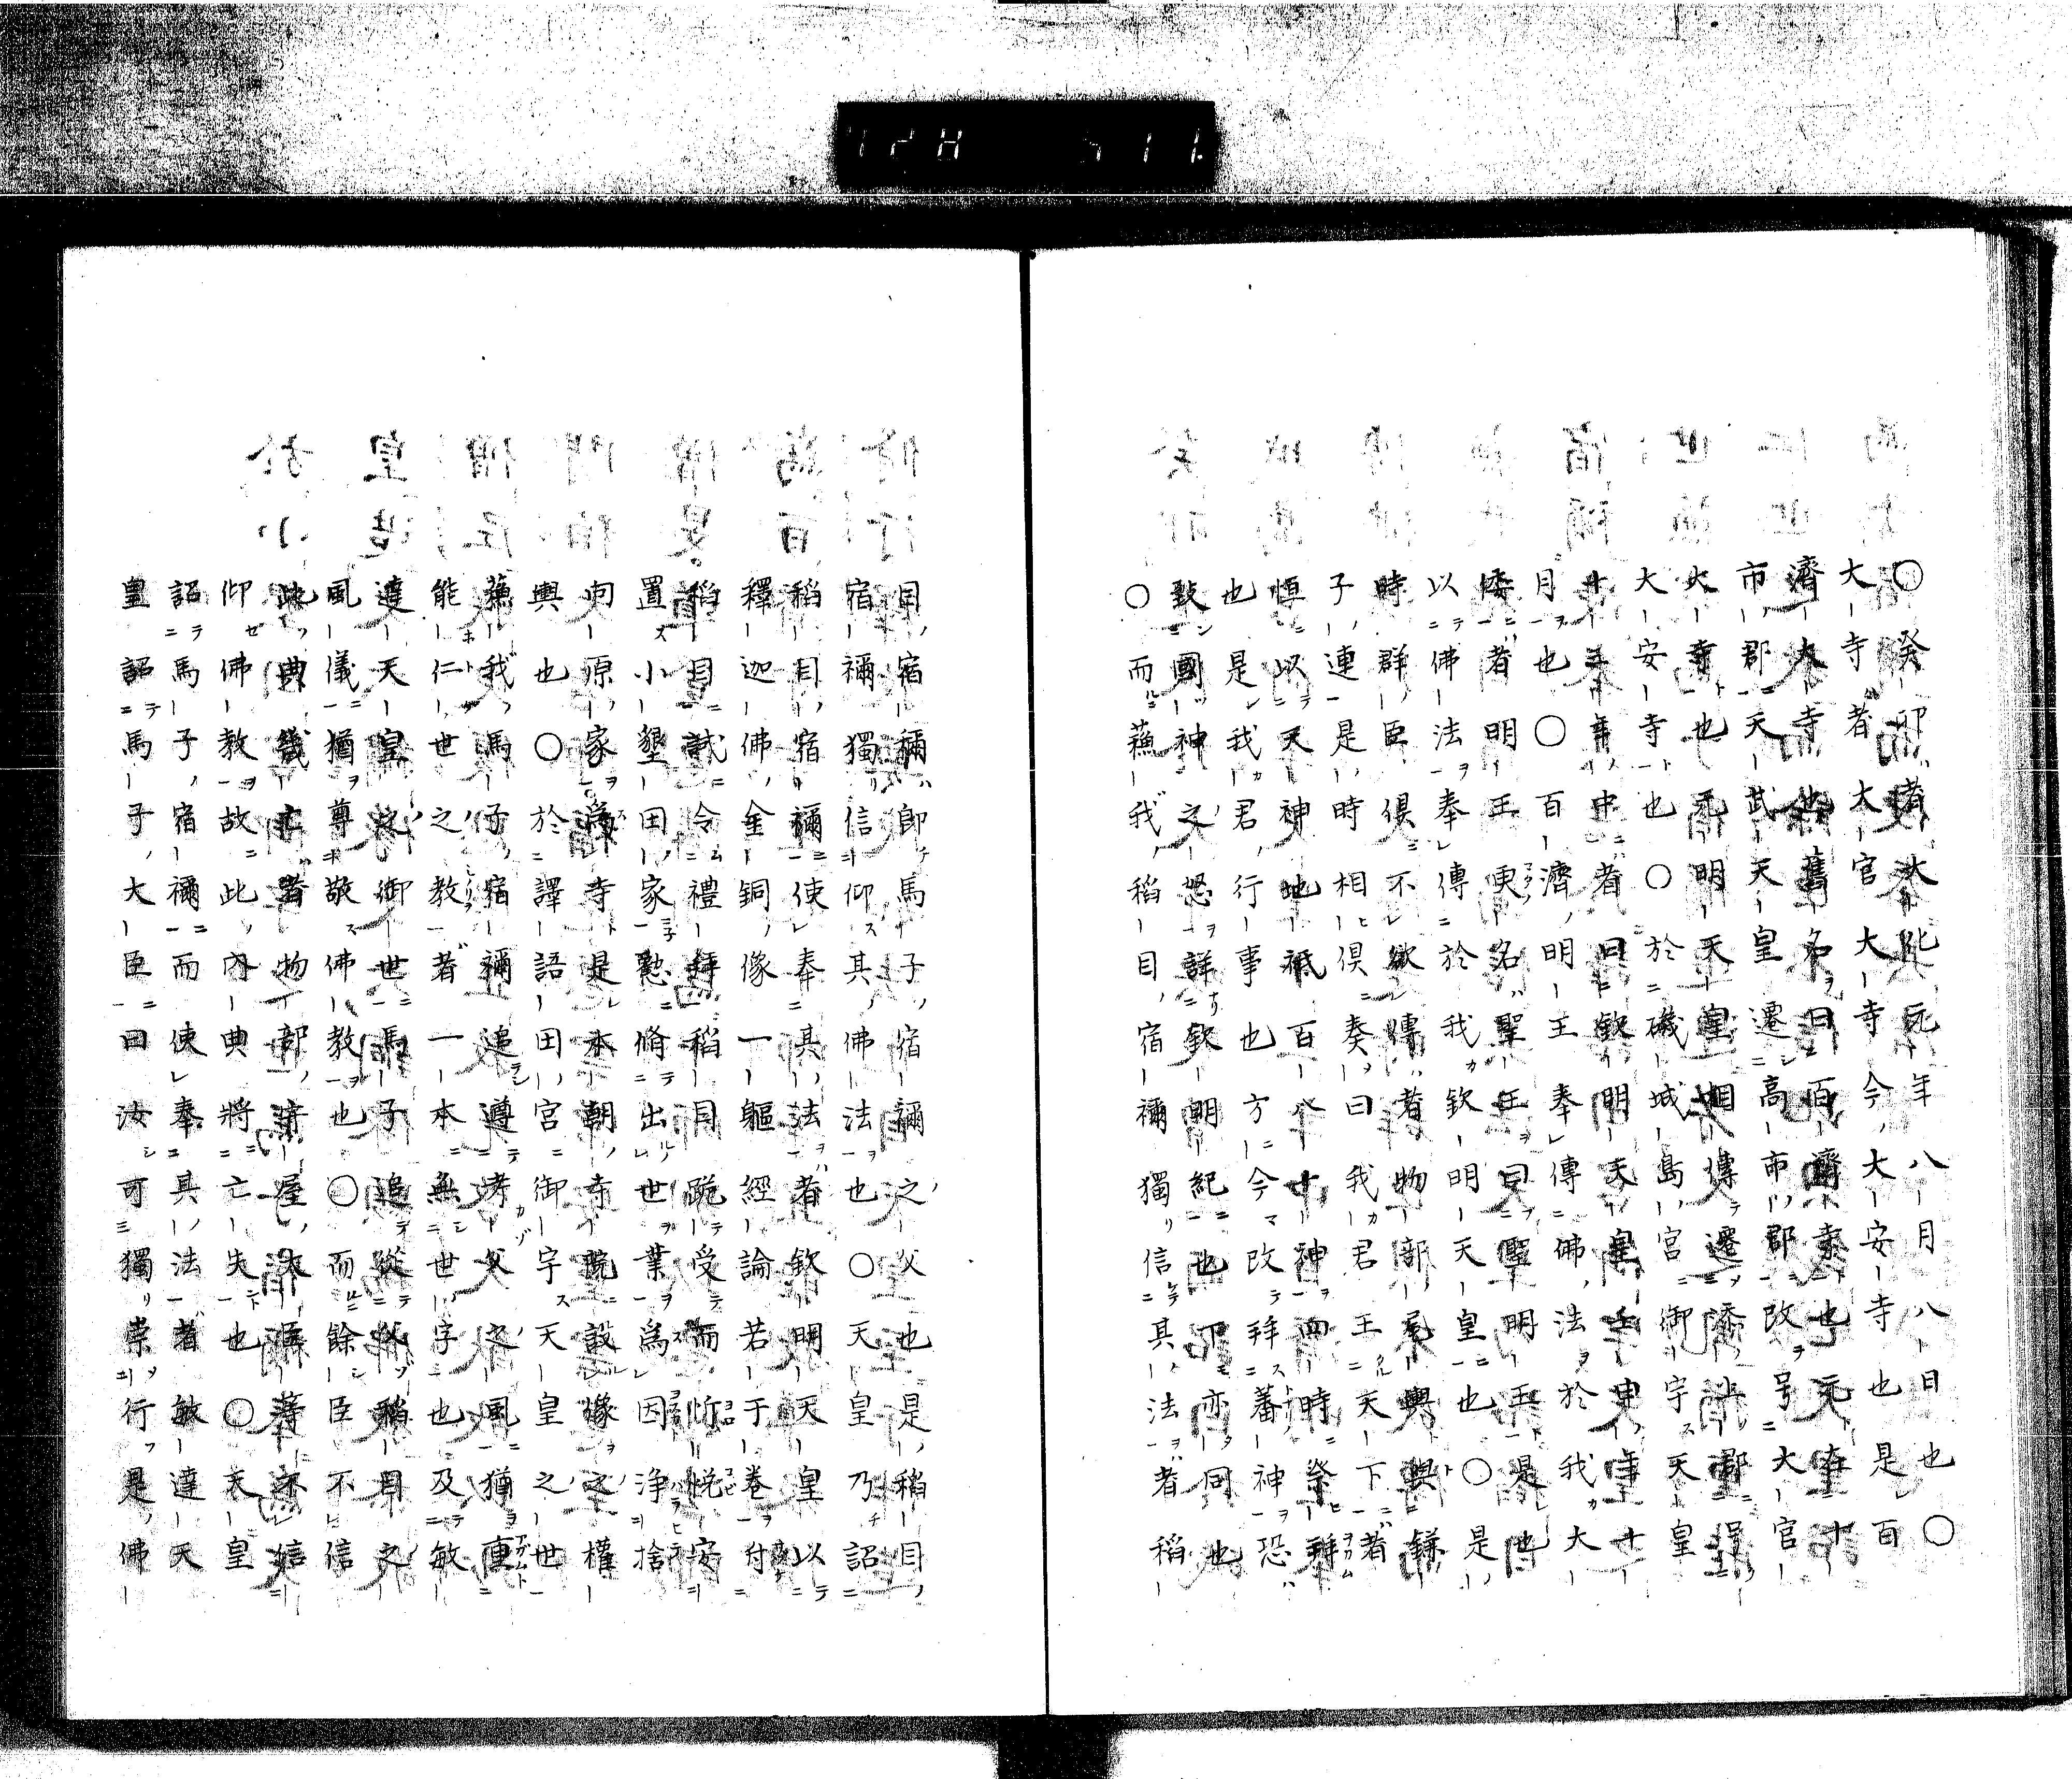 ○癸卯者大化元年八月八日也○
大寺者大官大寺今大安寺也是百
濟大寺也舊名曰百濟寺也元在十
市郡天武天皇遷高市郡改号大官
大寺也元明天皇相傳遷添上郡号
大安寺也○於磯城島宮御宇天皇
十三年中者曰欽明天皇壬申年十
月也○百濟明王奉傳佛法於我大
倭者明王更名聖王曰聖明王是也
以佛法奉傳於我欽明天皇也○是
時群臣俱不欲傳者物部尾輿與鎌
子連是時相俱奏曰我君王天下者
恒以天神地祇百八十神而時祭拜
也是我君行事也方今改拜蕃神恐
致國神之怒詳欽明紀也下亦同也
○而蘓我稻目宿禰獨信其法者稻
目宿禰即馬子宿禰之父也是稻目
宿禰獨信仰其佛法也○天皇乃詔
稻目宿禰使奉其法者欽明天皇以
釋迦佛金銅像一軀經論若于卷付
稻目試令禮拜稻目跪受而忻悦安
置小墾田家懃脩出世業為因浄捨
向原家為寺是本朝寺院設像之權
輿也○於譯語田宮御宇天皇之世
蘓我馬子宿禰追遵考父之風猶重
能仁世之教者一本無世字也及敏
達天皇之御世馬子追從父稻目之
風儀猶尊敬佛教也○而餘臣不信
此典幾亡者物部守屋大臣等不信
仰佛教故此內典將亡失也○天皇
詔馬子宿禰而使奉其法者敏達天
皇詔馬子大臣曰汝可獨崇行是佛